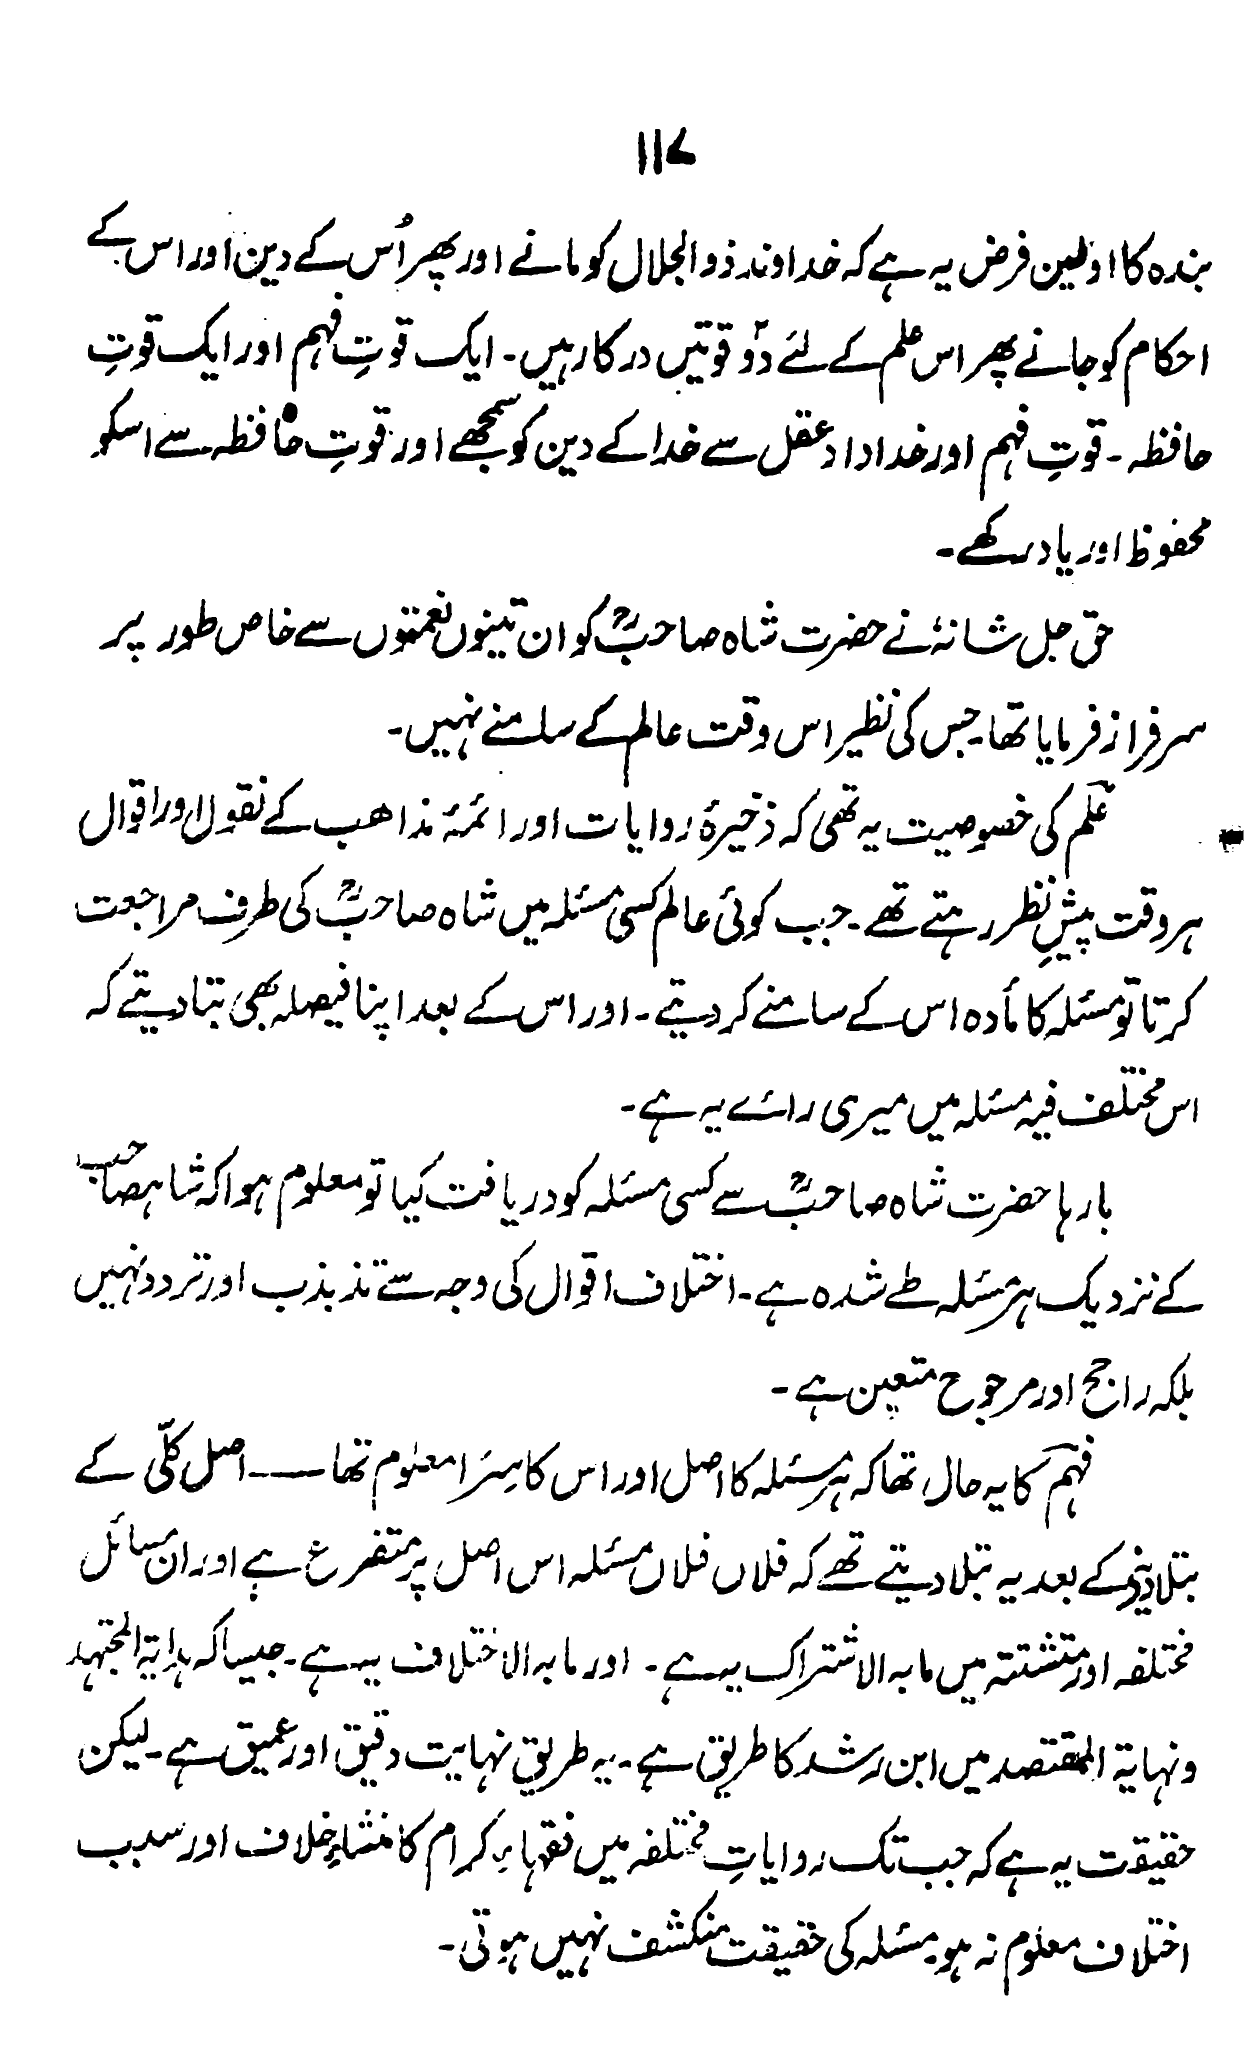 ۱۱۷
بندہ کا اولین فرض یہ ہے کہ خداوند ذوالجلال کو مانے اور پھر اُس کے دین اور اس کے
احکام کو جانے پھر اس علم کے لئے دوؔ قوتیں درکار ہیں۔ ایک قوتِ فہم اور ایک قوتِ
حافظہ۔ قوتِ فہم اور خداداد عقل سے خدا کے دین کو سمجھے اور قوتِ حافظہ سے اسکو
محفوظ اور یاد رکھے۔
حق جل شانہٗ نے حضرت شاہ صاحبؒ کو ان تینوں نعمتوں سے خاص طور پر
سرفراز فرمایا تھا۔ جس کی نظیر اس وقت عالم کے سامنے نہیں۔
علم کی خصوصیت یہ تھی کہ ذخیرۂ روایات اور ائمۂ مذاھب کے نقول اور اقوال
ہر وقت پیشِ نظر رہتے تھے۔ جب کوئی عالم کسی مسئلہ میں شاہ صاحبؒ کی طرف مراجعت
کرتا تو مسئلہ کا مأدہ اس کے سامنے کر دیتے۔ اور اس کے بعد اپنا فیصلہ بھی بتا دیتے کہ
اس مختلف فیہ مسئلہ میں میری رائے یہ ہے۔
بارہا حضرت شاہ صاحبؒ سے کسی مسئلہ کو دریافت کیا تو معلوم ہوا کہ شاہصاحب
کے نزدیک ہر مسئلہ طے شدہ ہے۔ اختلاف اقوال کی وجہ سے تذبذب اور تردد نہیں
بلکہ راجح اور مرجوح متعین ہے۔
فہم کا یہ حال تھا کہ ہر مسئلہ کا اصل اور اس کا سِرا معلوم تھا ـــــ اصل کلّی کے
بتلا دینے کے بعد یہ بتلا دیتے تھے کہ فلاں فلاں مسئلہ اس اصل پر متفرع ہے اور ان مسائل
مختلفہ اور متشتتہ میں مابہ الاشتراک یہ ہے۔ اور مابہ الاختلاف یہ ہے۔ جیسا کہ بدایۃ المجتہد
ونہایۃ المقتصد میں ابن رشد کا طریق ہے۔ یہ طریق نہایت دقیق اور عمیق ہے۔ لیکن
حقیقت یہ ہے کہ جب تک روایاتِ مختلفہ میں فقہاء کرام کا منشاءِ خلاف اور سبب
اختلاف معلوم نہ ہو۔ مسئلہ کی حقیقت منکشف نہیں ہوتی۔